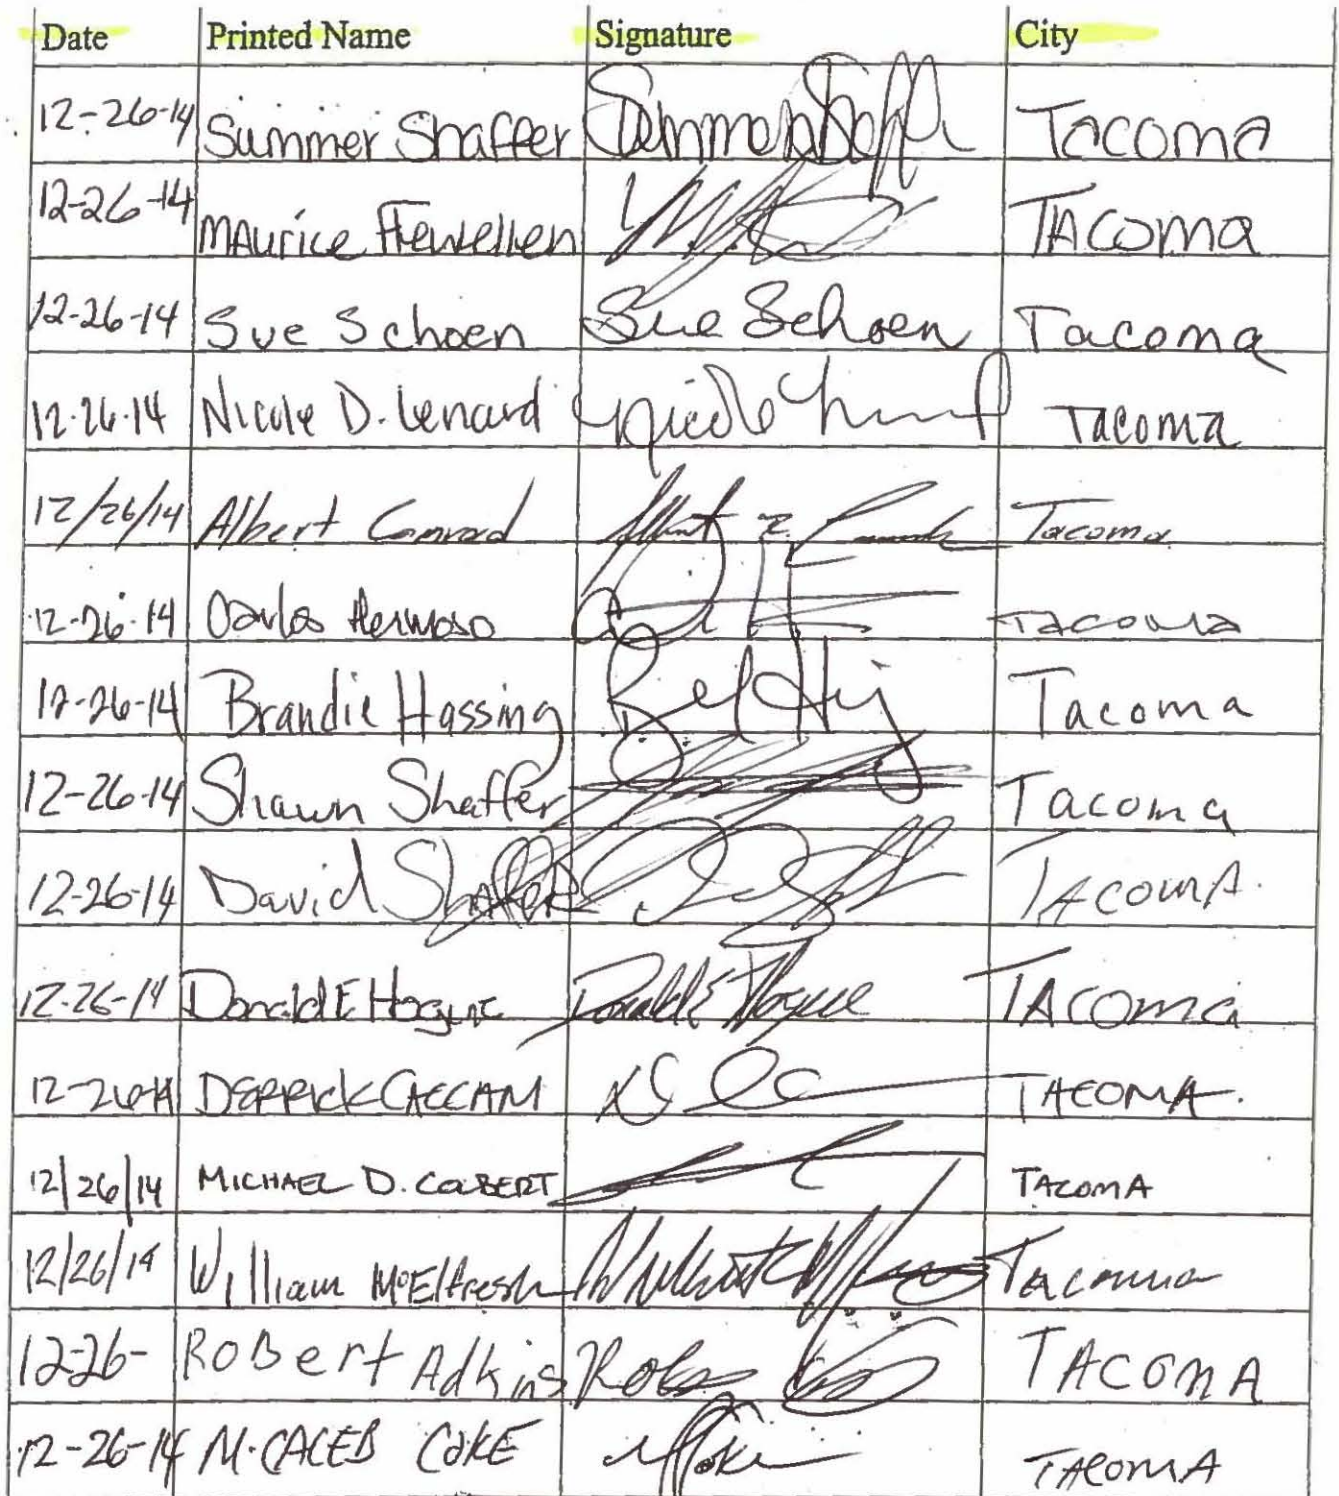 Date Printed Name Signature City
12-26-14 Summer Shaffer Tacoma
12-26-14 Maurice Flewellen Tacoma
12-26-14 Sue Schoen Sue Schoen Tacoma
12-26-14 Nicole D. Lenard Nicole Tacoma
12/26/14 Albert Conrad Albert Tacoma
12-26-14 Carlos Hermoso Tacoma
12-26-14 Brandie Hassing Tacoma
12-26-14 Shawn Shaffer Tacoma
12-26-14 David Shaffer TACOMA
12-26-14 Donald E Hogue Donald E Hogue TACOMA
12-26-14 DERRICK CACCAM TACOMA
12/26/14 MICHAEL D. COLBERT TACOMA
12/26/14 William McElfresh Tacoma
12-26- Robert Adkins TACOMA
12-26-14 M. CALEB COKE TACOMA